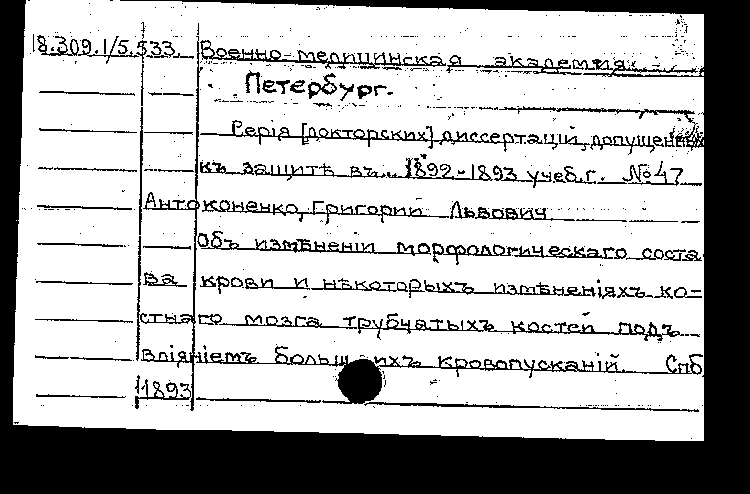 18.309.1/5.533. Военно-медицинская академия.
Петербург.
Серія [докторских] диссертацій, допущенных
къ защитѣ въ... 1892-1893 учеб.г. №47
Антоконенко, Григорий Львович
Объ измѣненіи морфологическаго соста
ва крови и нѣкоторыхъ измѣненіяхъ ко-
стнаго мозга трубчатыхъ костей подъ
вліяніемъ большихъ кровопусканій. Спб
1893